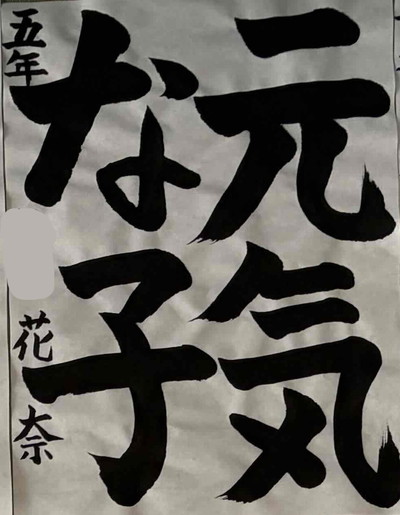 元気
な子
五年 花奈